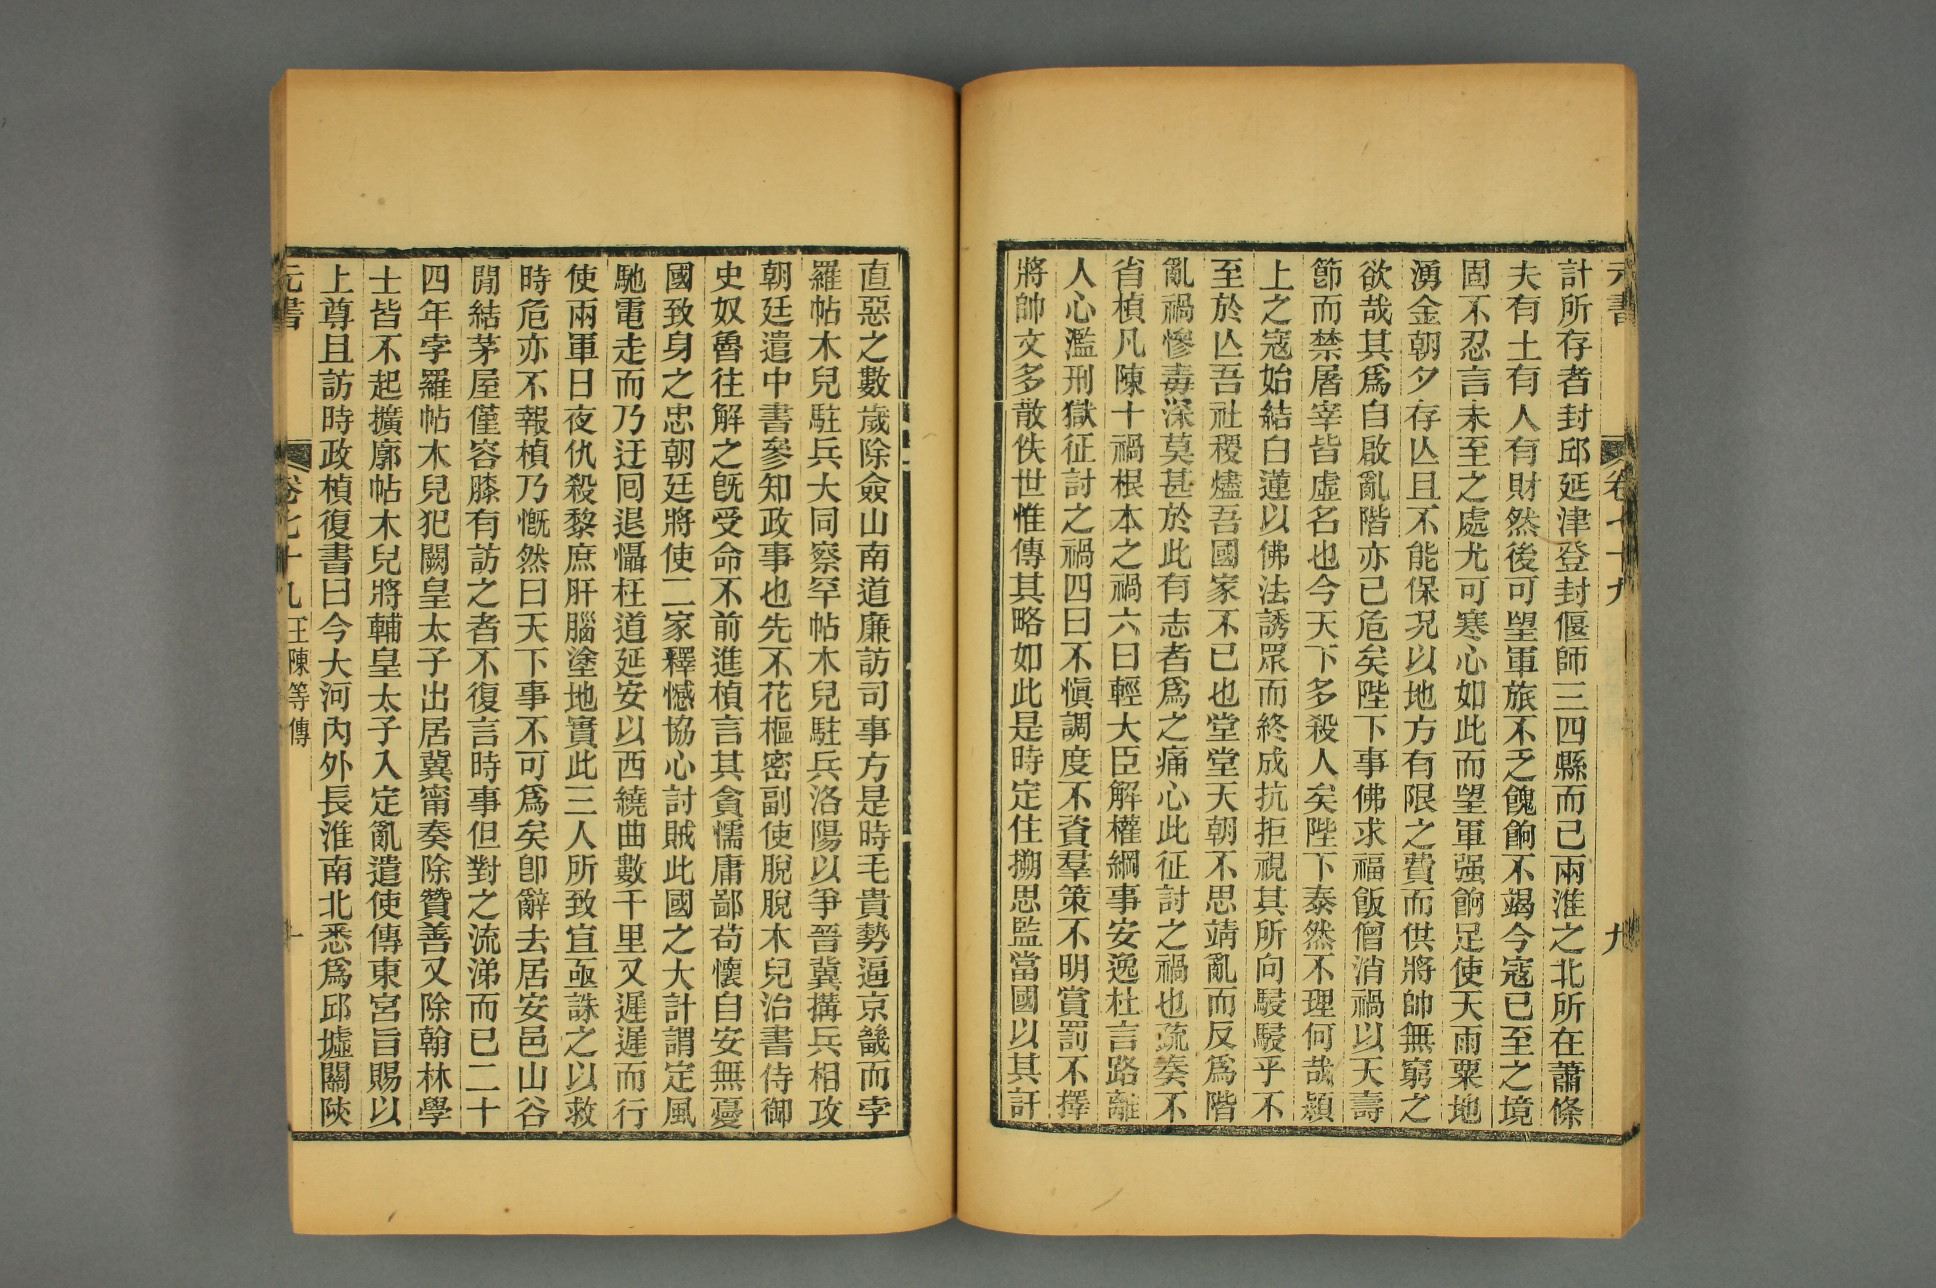 元書 卷七十九 九
計所存者封邱延津登封偃師三四縣而已兩淮之北所在蕭條
夫有土有人有財然後可望軍旅不乏餽餉不竭今寇已至之境
固不忍言未至之處尤可寒心如此而望軍强餉足使天雨粟地
湧金朝夕存亾且不能保况以地方有限之費而供將帥無窮之
欲哉其爲自啟亂階亦已危矣陛下事佛求福飯僧消禍以天壽
節而禁屠宰皆虛名也今天下多殺人矣陛下泰然不理何哉潁
上之寇始結白蓮以佛法誘眾而終成抗拒視其所向駸駸乎不
至於亾吾社稷燼吾國家不已也堂堂天朝不思靖亂而反爲階
亂禍慘毒深莫甚於此有志者爲之痛心此征討之禍也疏奏不
省楨凡陳十禍根本之禍六曰輕大臣解權綱事安逸杜言路離
人心濫刑獄征討之禍四曰不愼調度不資羣策不明賞罰不擇
將帥文多散佚世惟傳其略如此是時定住搠思監當國以其訐
直惡之數歲除僉山南道廉訪司事方是時毛貴勢逼京畿而孛
羅帖木兒駐兵大同察罕帖木兒駐兵洛陽以爭晉冀搆兵相攻
朝廷遣中書參知政事也先不花樞密副使脫脫木兒治書侍御
史奴魯往解之旣受命不前進楨言其貪懦庸鄙苟懷自安無憂
國致身之忠朝廷將使二家釋憾協心討賊此國之大計謂定風
馳電走而乃迂囘退懾枉道延安以西繞曲數千里又遲遲而行
使兩軍日夜仇殺黎庶肝腦塗地實此三人所致宜亟誅之以救
時危亦不報楨乃慨然曰天下事不可爲矣卽辭去居安邑山谷
閒結茅屋僅容膝有訪之者不復言時事但對之流涕而已二十
四年孛羅帖木兒犯闕皇太子出居冀甯奏除贊善又除翰林學
士皆不起擴廓帖木兒將輔皇太子入定亂遣使傳東宮旨賜以
上尊且訪時政楨復書曰今大河內外長淮南北悉爲邱墟關陝
元書 卷七十九 王陳等傳 十